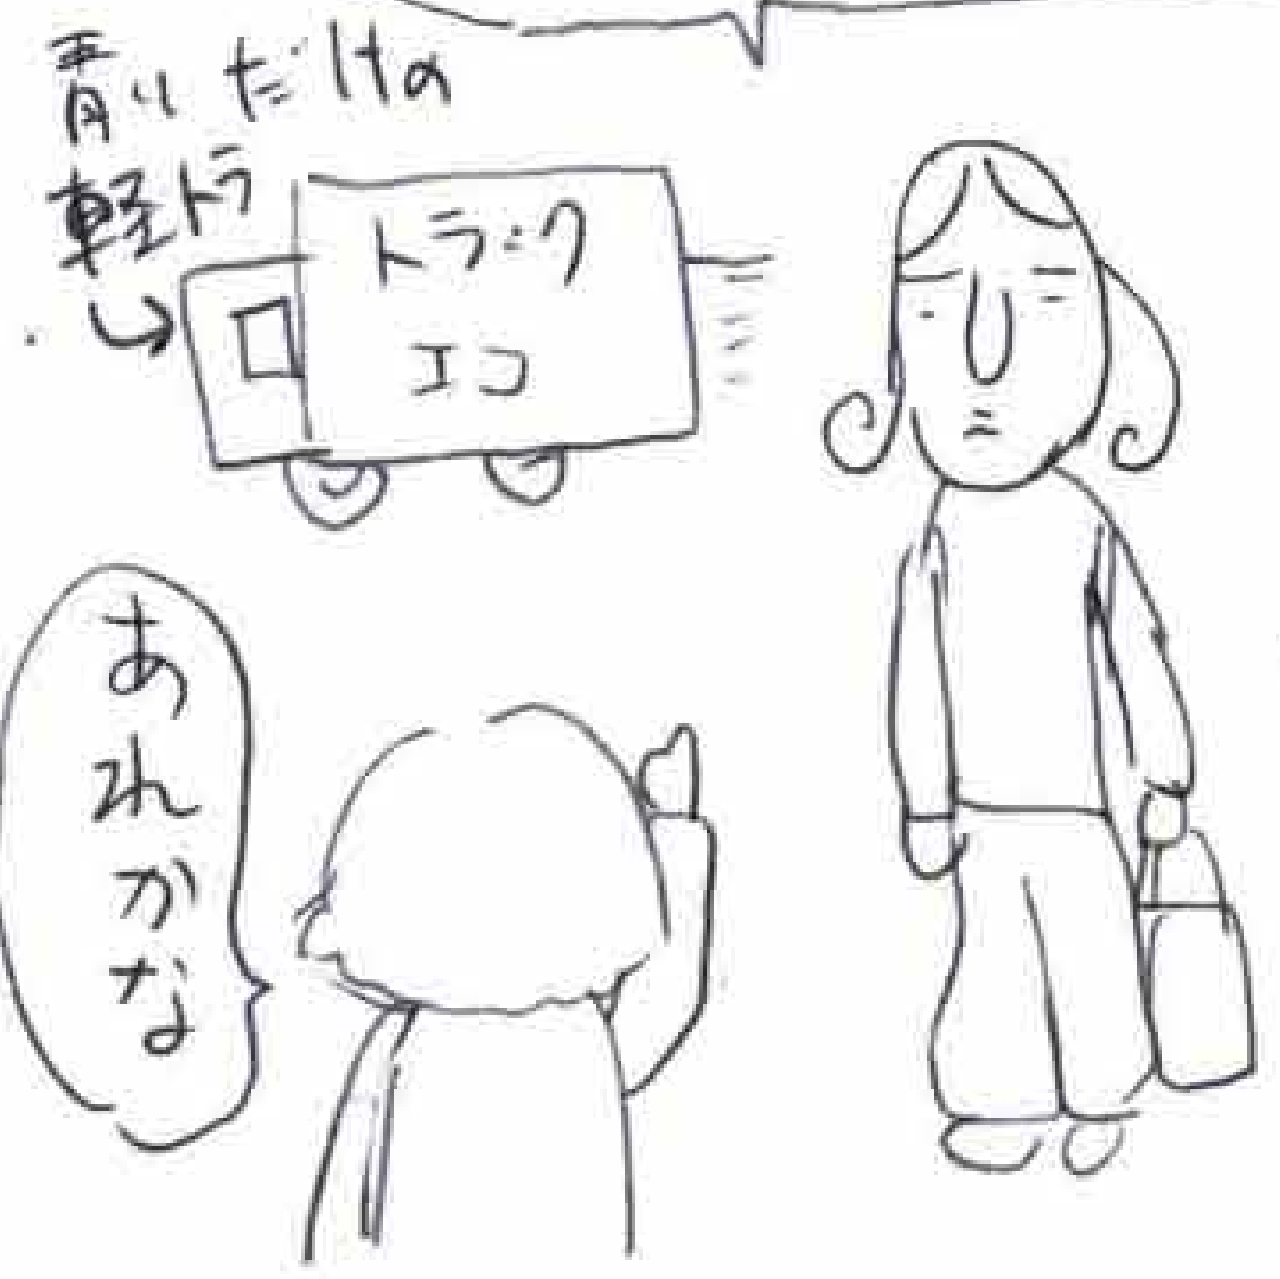 青いだけの
軽トラ
トラック
エコ
あれかな